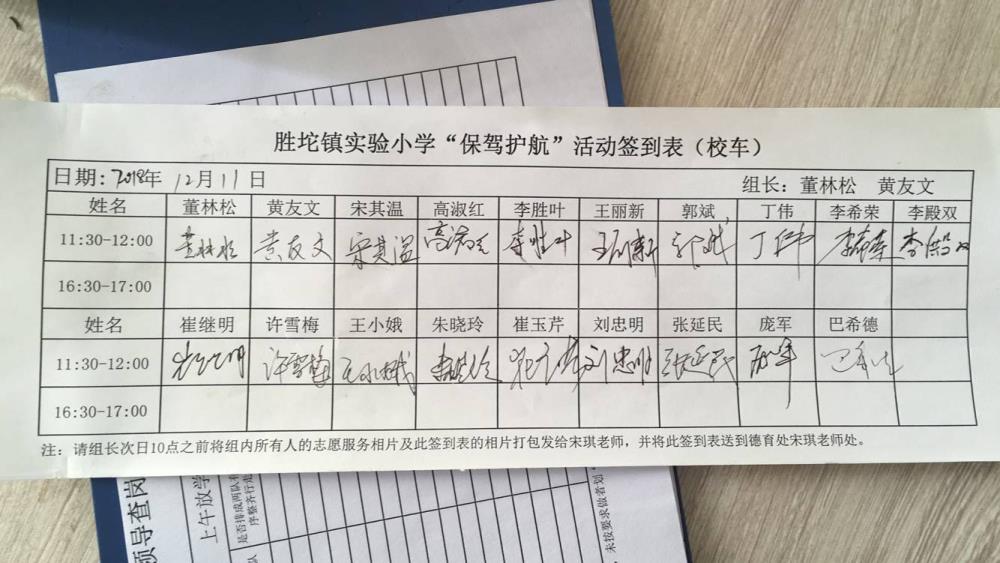 胜坨镇实验小学“保驾护航”活动签到表（校车）
日期：2018年 12月11日 组长：董林松 黄友文
姓名 董林松 黄友文 宋其温 高淑红 李胜叶 王丽新 郭斌 丁伟 李希荣 李殿双
11:30-12:00 董林松 黄友文 宋其温 高淑红 李胜叶 王丽新 郭斌 丁伟 李希荣 李殿双
16:30-17:00
姓名 崔继明 许雪梅 王小娥 朱晓玲 崔玉芹 刘忠明 张延民 庞军 巴希德
11:30-12:00 崔继明 许雪梅 王小娥 朱晓玲 崔玉芹 刘忠明 张延民 庞军 巴希德
16:30-17:00
注：请组长次日10点之前将组内所有人的志愿服务相片及此签到表的相片打包发给宋琪老师，并将此签到表送到德育处宋琪老师处。
领导查岗
上午放学
是否排成两队
序整齐行走
未按要求做者划